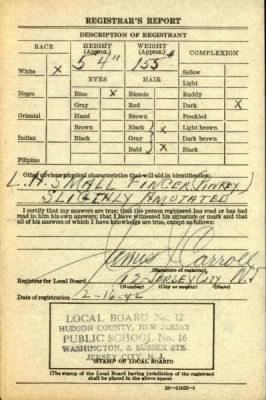 REGISTRAR'S REPORT
DESCRIPTION OF REGISTRANT
RACE HEIGHT (Approx.) WEIGHT (Approx.) COMPLEXION
5' 4" 155#
White X Sallow
EYES HAIR Light
Negro Blue X Blonde Ruddy
Gray Red Dark X
Oriental Hazel Brown Freckled
Brown Black X Light brown
Indian Black Gray Dark brown
Bald X Black
Filipino
Other obvious physical characteristics that will aid in identification:
L.H. SMALL FINGER (PINKEY)
SLIGTHLY AMUTATED
I certify that my answers are true; that the person registered has read or has had
read to him his own answers; that I have witnessed his signature or mark and that
all of his answers of which I have knowledge are true, except as follows:
James J. Carroll
(Signature of registrar)
Registrar for Local Board 12 JERSEY CITY N.J.
(Number) (City or county) (State)
Date of registration 2-16-42
LOCAL BOARD No. 12
HUDSON COUNTY, NEW JERSEY
PUBLIC SCHOOL No. 16
WASHINGTON & SUSSEX STS.
JERSEY CITY, N. J.
(STAMP OF LOCAL BOARD)
(The stamp of the Local Board having jurisdiction of the registrant
shall be placed in the above space)